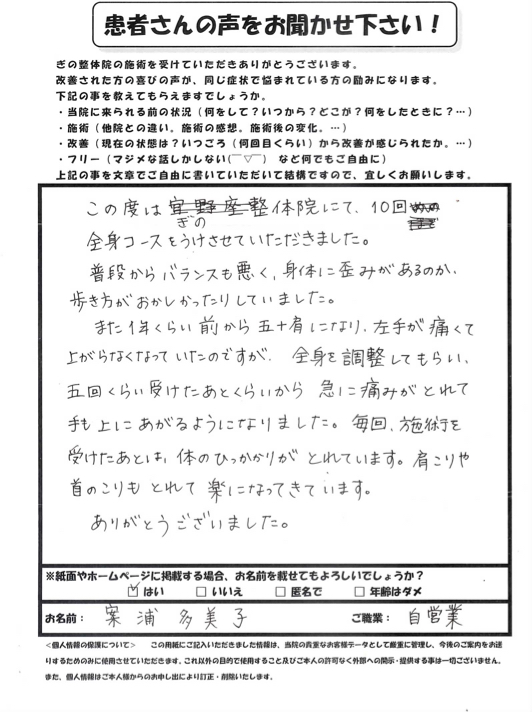 患者さんの声をお聞かせ下さい！
ぎの整体院の施術を受けていただきありがとうございます。
改善された方の喜びの声が、同じ症状で悩まれている方の励みになります。
下記の事を教えてもらえますでしょうか。
・当院に来られる前の状況（何をして？いつから？どこが？何をしたときに？…）
・施術（他院との違い。施術の感想。施術後の変化。…）
・改善（現在の状態は？いつごろ（何回目くらい）から改善が感じられたか。…）
・フリー（マジメな話しかしない(￣▽￣)　など何でもご自由に）
上記の事を文章でご自由に書いていただいて結構ですので、宜しくお願いします。
この度は宜野座整体院にて、10回
ぎの
全身コースをうけさせていただきました。
普段からバランスも悪く、身体に歪みがあるのか、
歩き方がおかしかったりしていました。
また1年くらい前から五十肩になり、左手が痛くて
上がらなくなっていたのですが、全身を調整してもらい、
五回くらい受けたあとくらいから急に痛みがとれて
手も上にあがるようになりました。毎回、施術を
受けたあとは、体のひっかかりがとれています。肩こりや
首のこりもとれて楽になってきています。
ありがとうございました。
※紙面やホームページに掲載する場合、お名前を載せてもよろしいでしょうか？
☑はい　□いいえ　□匿名で　□年齢はダメ
お名前：案浦 多美子　ご職業：自営業
＜個人情報の保護について＞　この用紙にご記入いただきました情報は、当院の貴重なお客様データとして厳重に管理し、今後のご案内をお送
りするためのみに使用させていただきます。これ以外の目的で使用すること及びご本人の許可なく外部への開示・提供する事は一切ございません。
また、個人情報はご本人様からのお申し出により訂正・削除いたします。